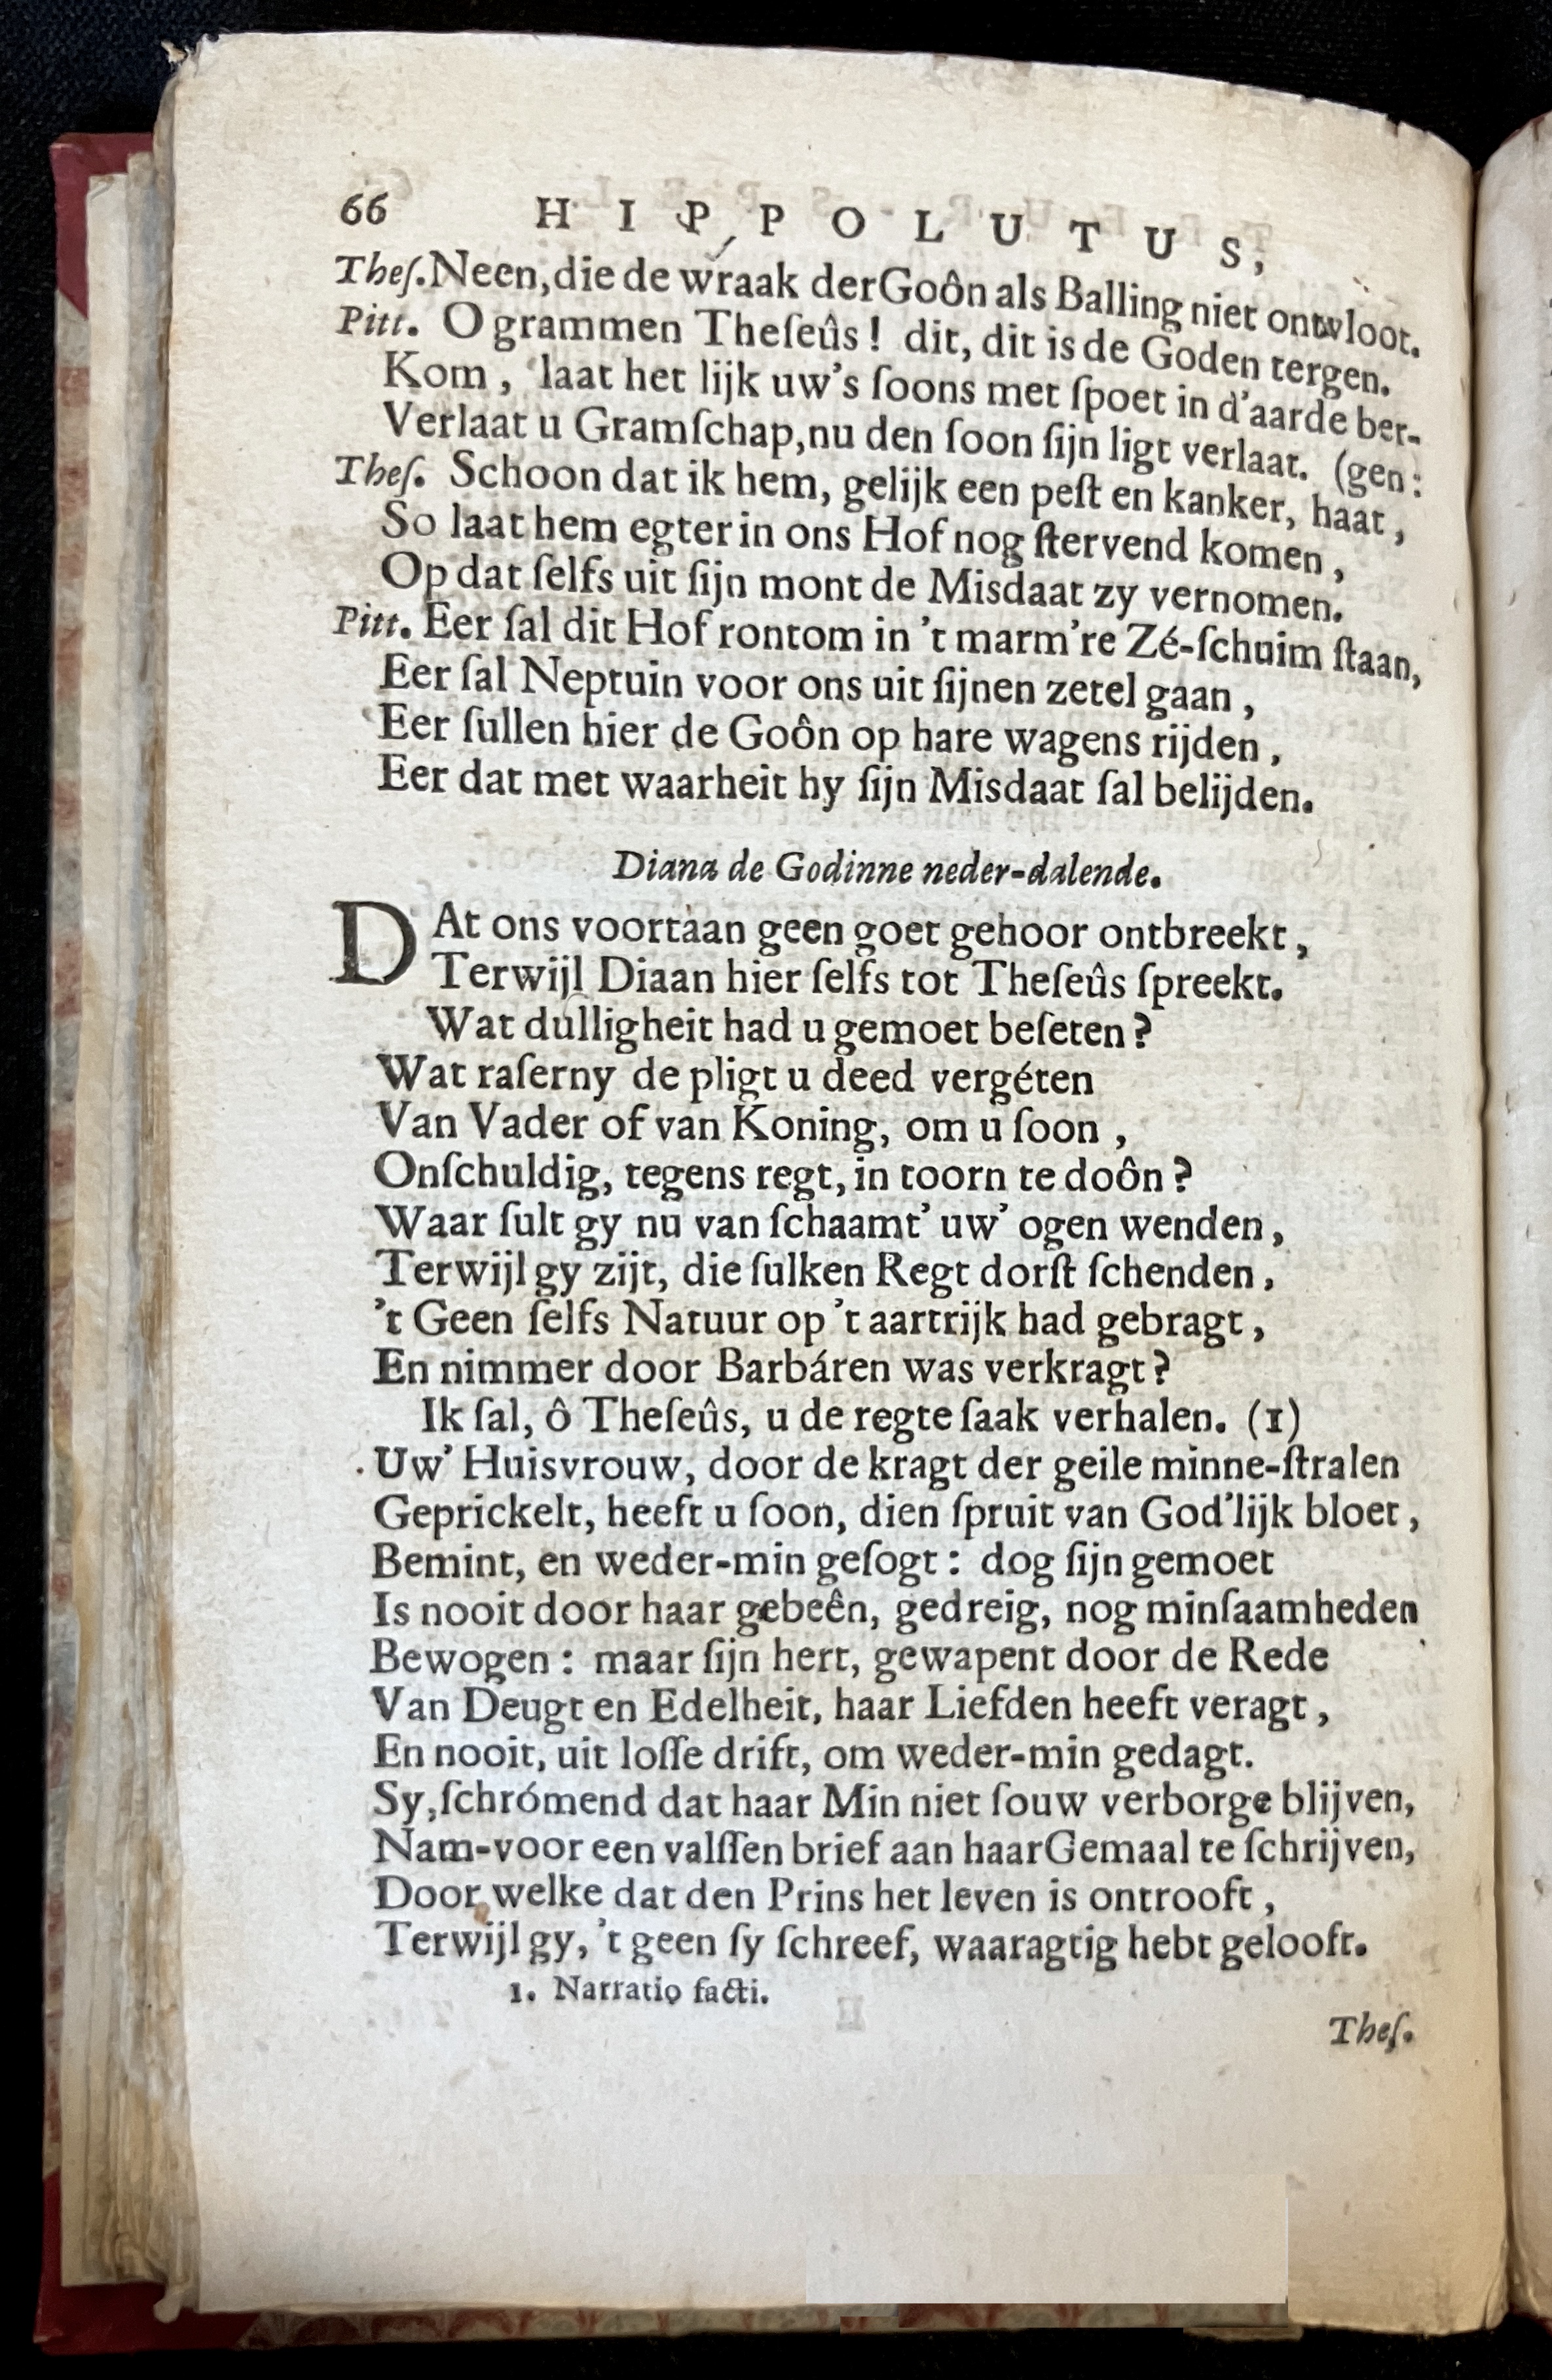 66 HIPPOLUTUS,
Theſ. Neen, die de wraak der Goôn als Balling niet ontvloot.
Pitt. O grammen Theſeûs! dit, dit is de Goden tergen.
Kom, laat het lijk uw's ſoons met ſpoet in d'aarde ber-
Verlaat u Gramſchap, nu den ſoon ſijn ligt verlaat. (gen:
Theſ. Schoon dat ik hem, gelijk een peſt en kanker, haat,
So laat hem egter in ons Hof nog ſtervend komen,
Op dat ſelfs uit ſijn mont de Misdaat zy vernomen.
Pitt. Eer ſal dit Hof rontom in 't marm're Zé-ſchuim ſtaan,
Eer ſal Neptuin voor ons uit ſijnen zetel gaan,
Eer ſullen hier de Goôn op hare wagens rijden,
Eer dat met waarheit hy ſijn Misdaat ſal belijden.
Diana de Godinne neder-dalende.
DAt ons voortaan geen goet gehoor ontbreekt,
Terwijl Diaan hier ſelfs tot Theſeûs ſpreekt.
Wat dulligheit had u gemoet beſeten?
Wat raſerny de pligt u deed vergéten
Van Vader of van Koning, om u ſoon,
Onſchuldig, tegens regt, in toorn te doôn?
Waar ſult gy nu van ſchaamt' uw' ogen wenden,
Terwijl gy zijt, die ſulken Regt dorſt ſchenden,
't Geen ſelfs Natuur op 't aartrijk had gebragt,
En nimmer door Barbáren was verkragt?
Ik ſal, ô Theſeûs, u de regte ſaak verhalen. (1)
Uw' Huisvrouw, door de kragt der geile minne-ſtralen
Geprickelt, heeft u ſoon, dien ſpruit van God'lijk bloet,
Bemint, en weder-min geſogt: dog ſijn gemoet
Is nooit door haar gebeên, gedreig, nog minſaamheden
Bewogen: maar ſijn hert, gewapent door de Rede
Van Deugt en Edelheit, haar Liefden heeft veragt,
En nooit, uit loſſe drift, om weder-min gedagt.
Sy, ſchrómend dat haar Min niet ſouw verborge blijven,
Nam-voor een valſſen brief aan haar Gemaal te ſchrijven,
Door welke dat den Prins het leven is ontrooft,
Terwijl gy, 't geen ſy ſchreef, waaragtig hebt gelooft.
1. Narratio facti.
Theſ.